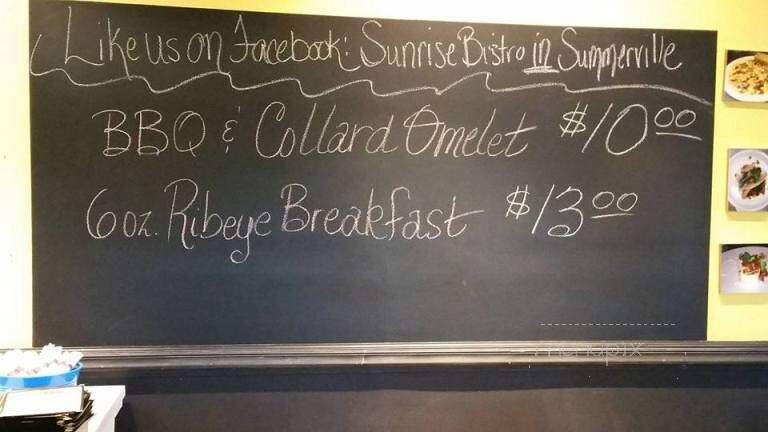 Like us on Facebook: Sunrise Bistro in Summerville
BBQ & Collard Omelet $10.00
6 oz. Ribeye Breakfast $13.00
menupix